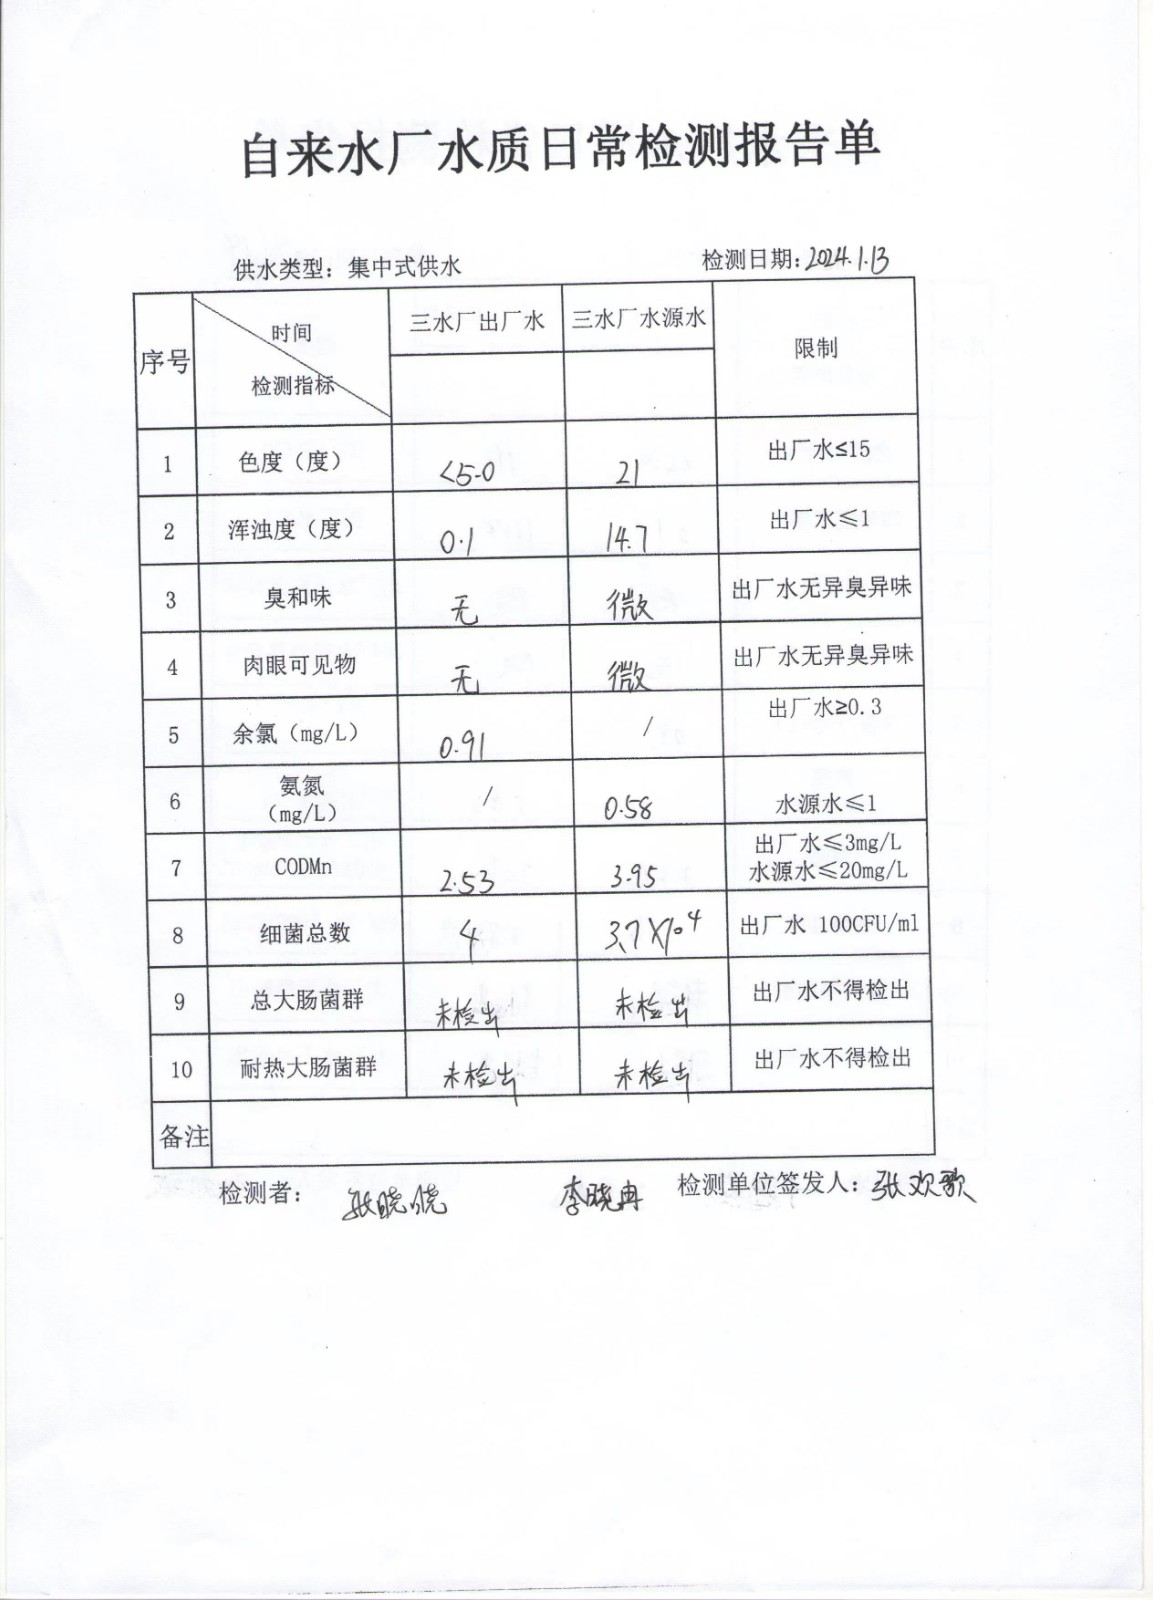 自来水厂水质日常检测报告单
供水类型：集中式供水 检测日期：2024.1.13
序号 时间 检测指标 三水厂出厂水 三水厂水源水 限制
1 色度（度） <5.0 21 出厂水≤15
2 浑浊度（度） 0.1 14.7 出厂水≤1
3 臭和味 无 微 出厂水无异臭异味
4 肉眼可见物 无 微 出厂水无异臭异味
5 余氯（mg/L） 0.91 / 出厂水≥0.3
6 氨氮 （mg/L） / 0.58 水源水≤1
7 CODMn 2.53 3.95 出厂水≤3mg/L 水源水≤20mg/L
8 细菌总数 4 3.7×10⁴ 出厂水 100CFU/ml
9 总大肠菌群 未检出 未检出 出厂水不得检出
10 耐热大肠菌群 未检出 未检出 出厂水不得检出
备注
检测者： 张晓晓 李晓冉 检测单位签发人：张欢歌